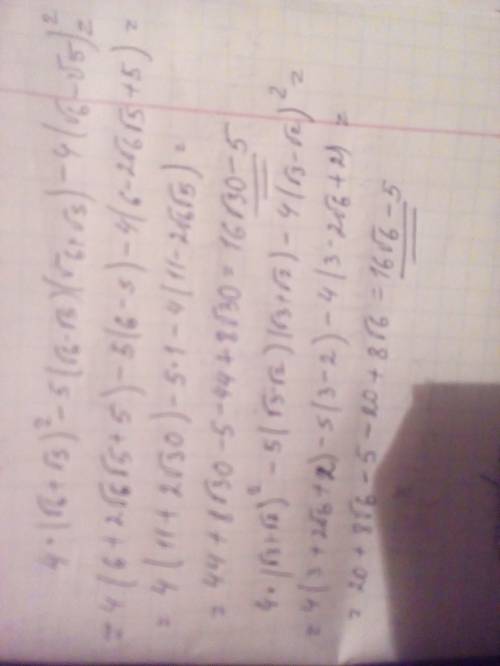 4·(√6+√5)²-5(√6-√5)(√6+√5)-4(√6-√5)²=
=4(6+2√6√5+5)-5(6-5)-4(6-2√6√5+5)=
=4(11+2√30)-5·1-4(11-2√6√5)=
=44+8√30-5-44+8√30=16√30-5
4·(√3+√2)²-5(√3-√2)(√3+√2)-4(√3-√2)²=
=4(3+2√6+2)-5(3-2)-4(3-2√6+2)=
=20+8√6-5-20+8√6=16√6-5